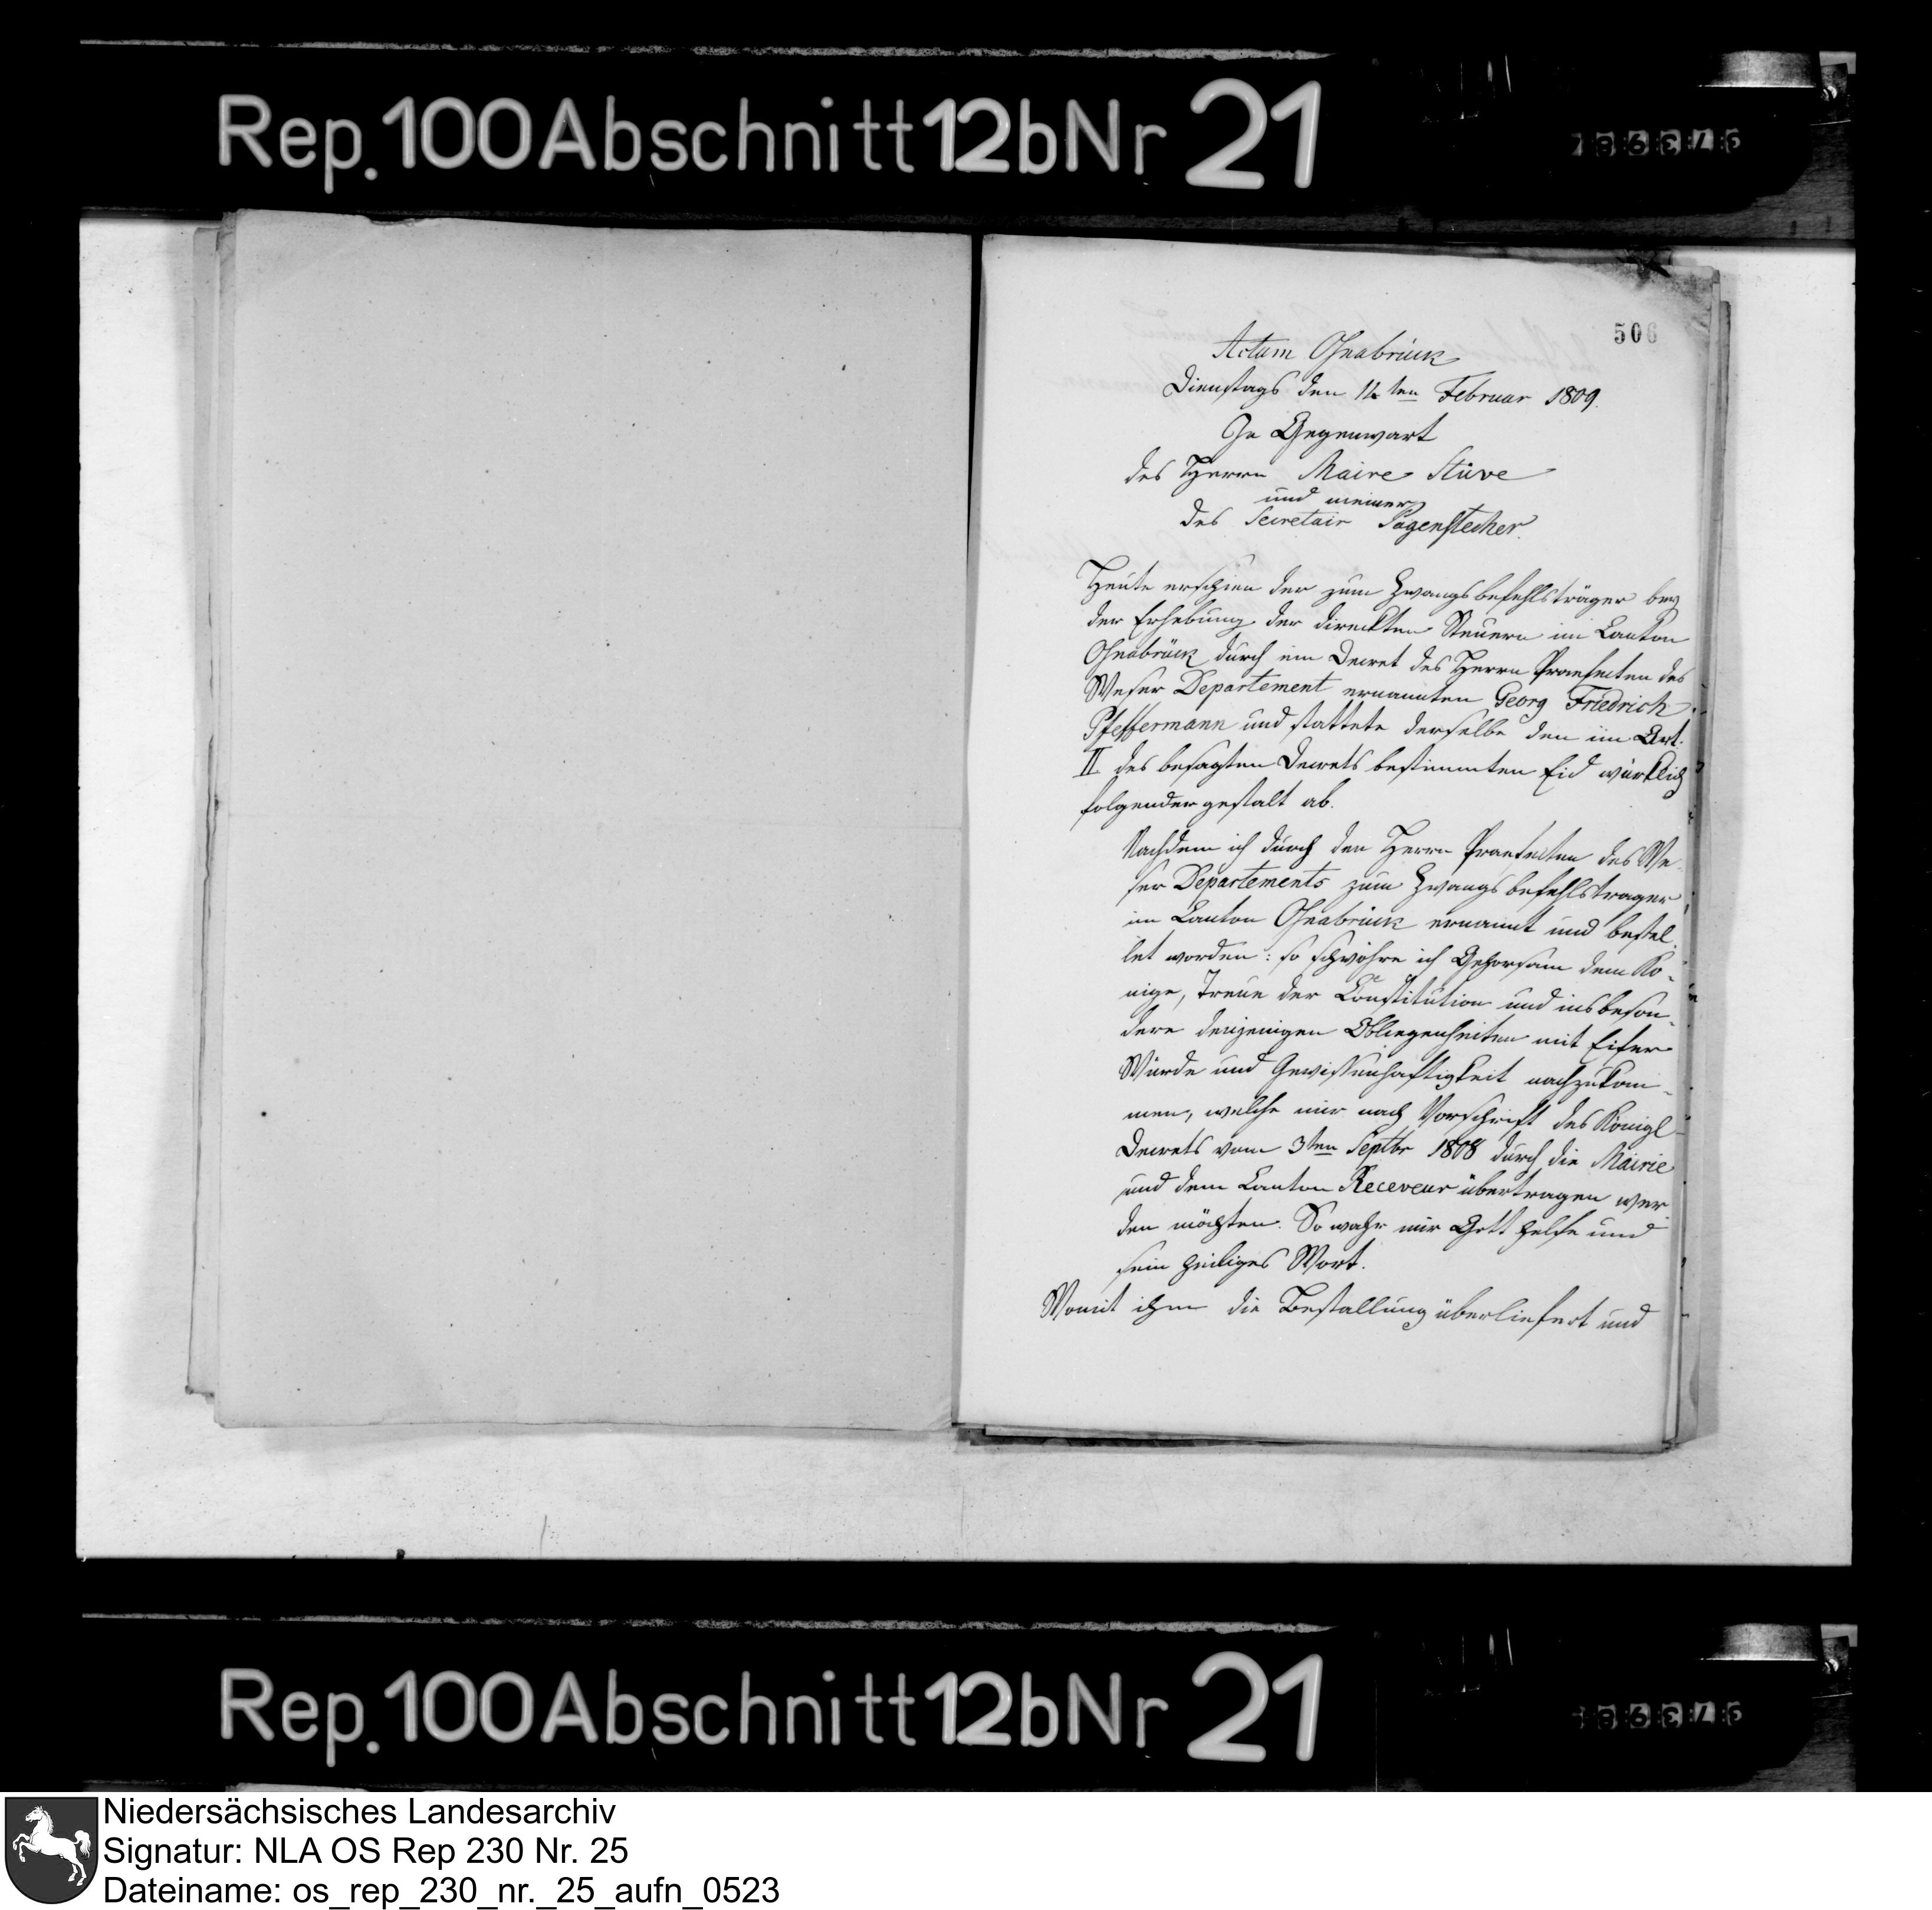 Rep. 100 Abschnitt 12b Nr 21
506
Actum Osnabrück
Dienstags den 14ten Februar 1809.
In Gegenwart
des Herrn Maire Stüve
und meiner
des Secretair Pagenstecher.
Heute erschien der zum Zwangsbefehlsträger bey
der Erhebung der direckten Steuern im Canton
Osnabrück durch ein Decret des Herrn Praefecten des
Weser Departement ernannten Georg Friedrich
Pfeffermann und stattete derselbe den im Art.
II des besagten Decrets bestimmten Eid würklich
folgendergestalt ab.
Nachdem ich durch den Herrn Praefecten des We
ser Departements zum Zwangsbefehlstrager
im Canton Osnabrück ernannt und bestel
let worden: so schwöhre ich Gehorsam dem Kö-
nige, Treue der Constitution und insbeson-
dere denjenigen Obliegenheiten mit Eifer
Würde und Gewissenhaftigkeit nachzukom-
men, welche mir nach Vorschrift des Königl
Decrets vom 3ten Septbr 1808 durch die Mairie
und dem Canton Receveur übertragen wer
den möchten. So wahr mir Gott helfe und
sein heiliges Wort.
Womit ihm die Bestallung überliefert und
Rep. 100 Abschnitt 12b Nr 21
Niedersächsisches Landesarchiv
Signatur: NLA OS Rep 230 Nr. 25
Dateiname: os_rep_230_nr._25_aufn_0523